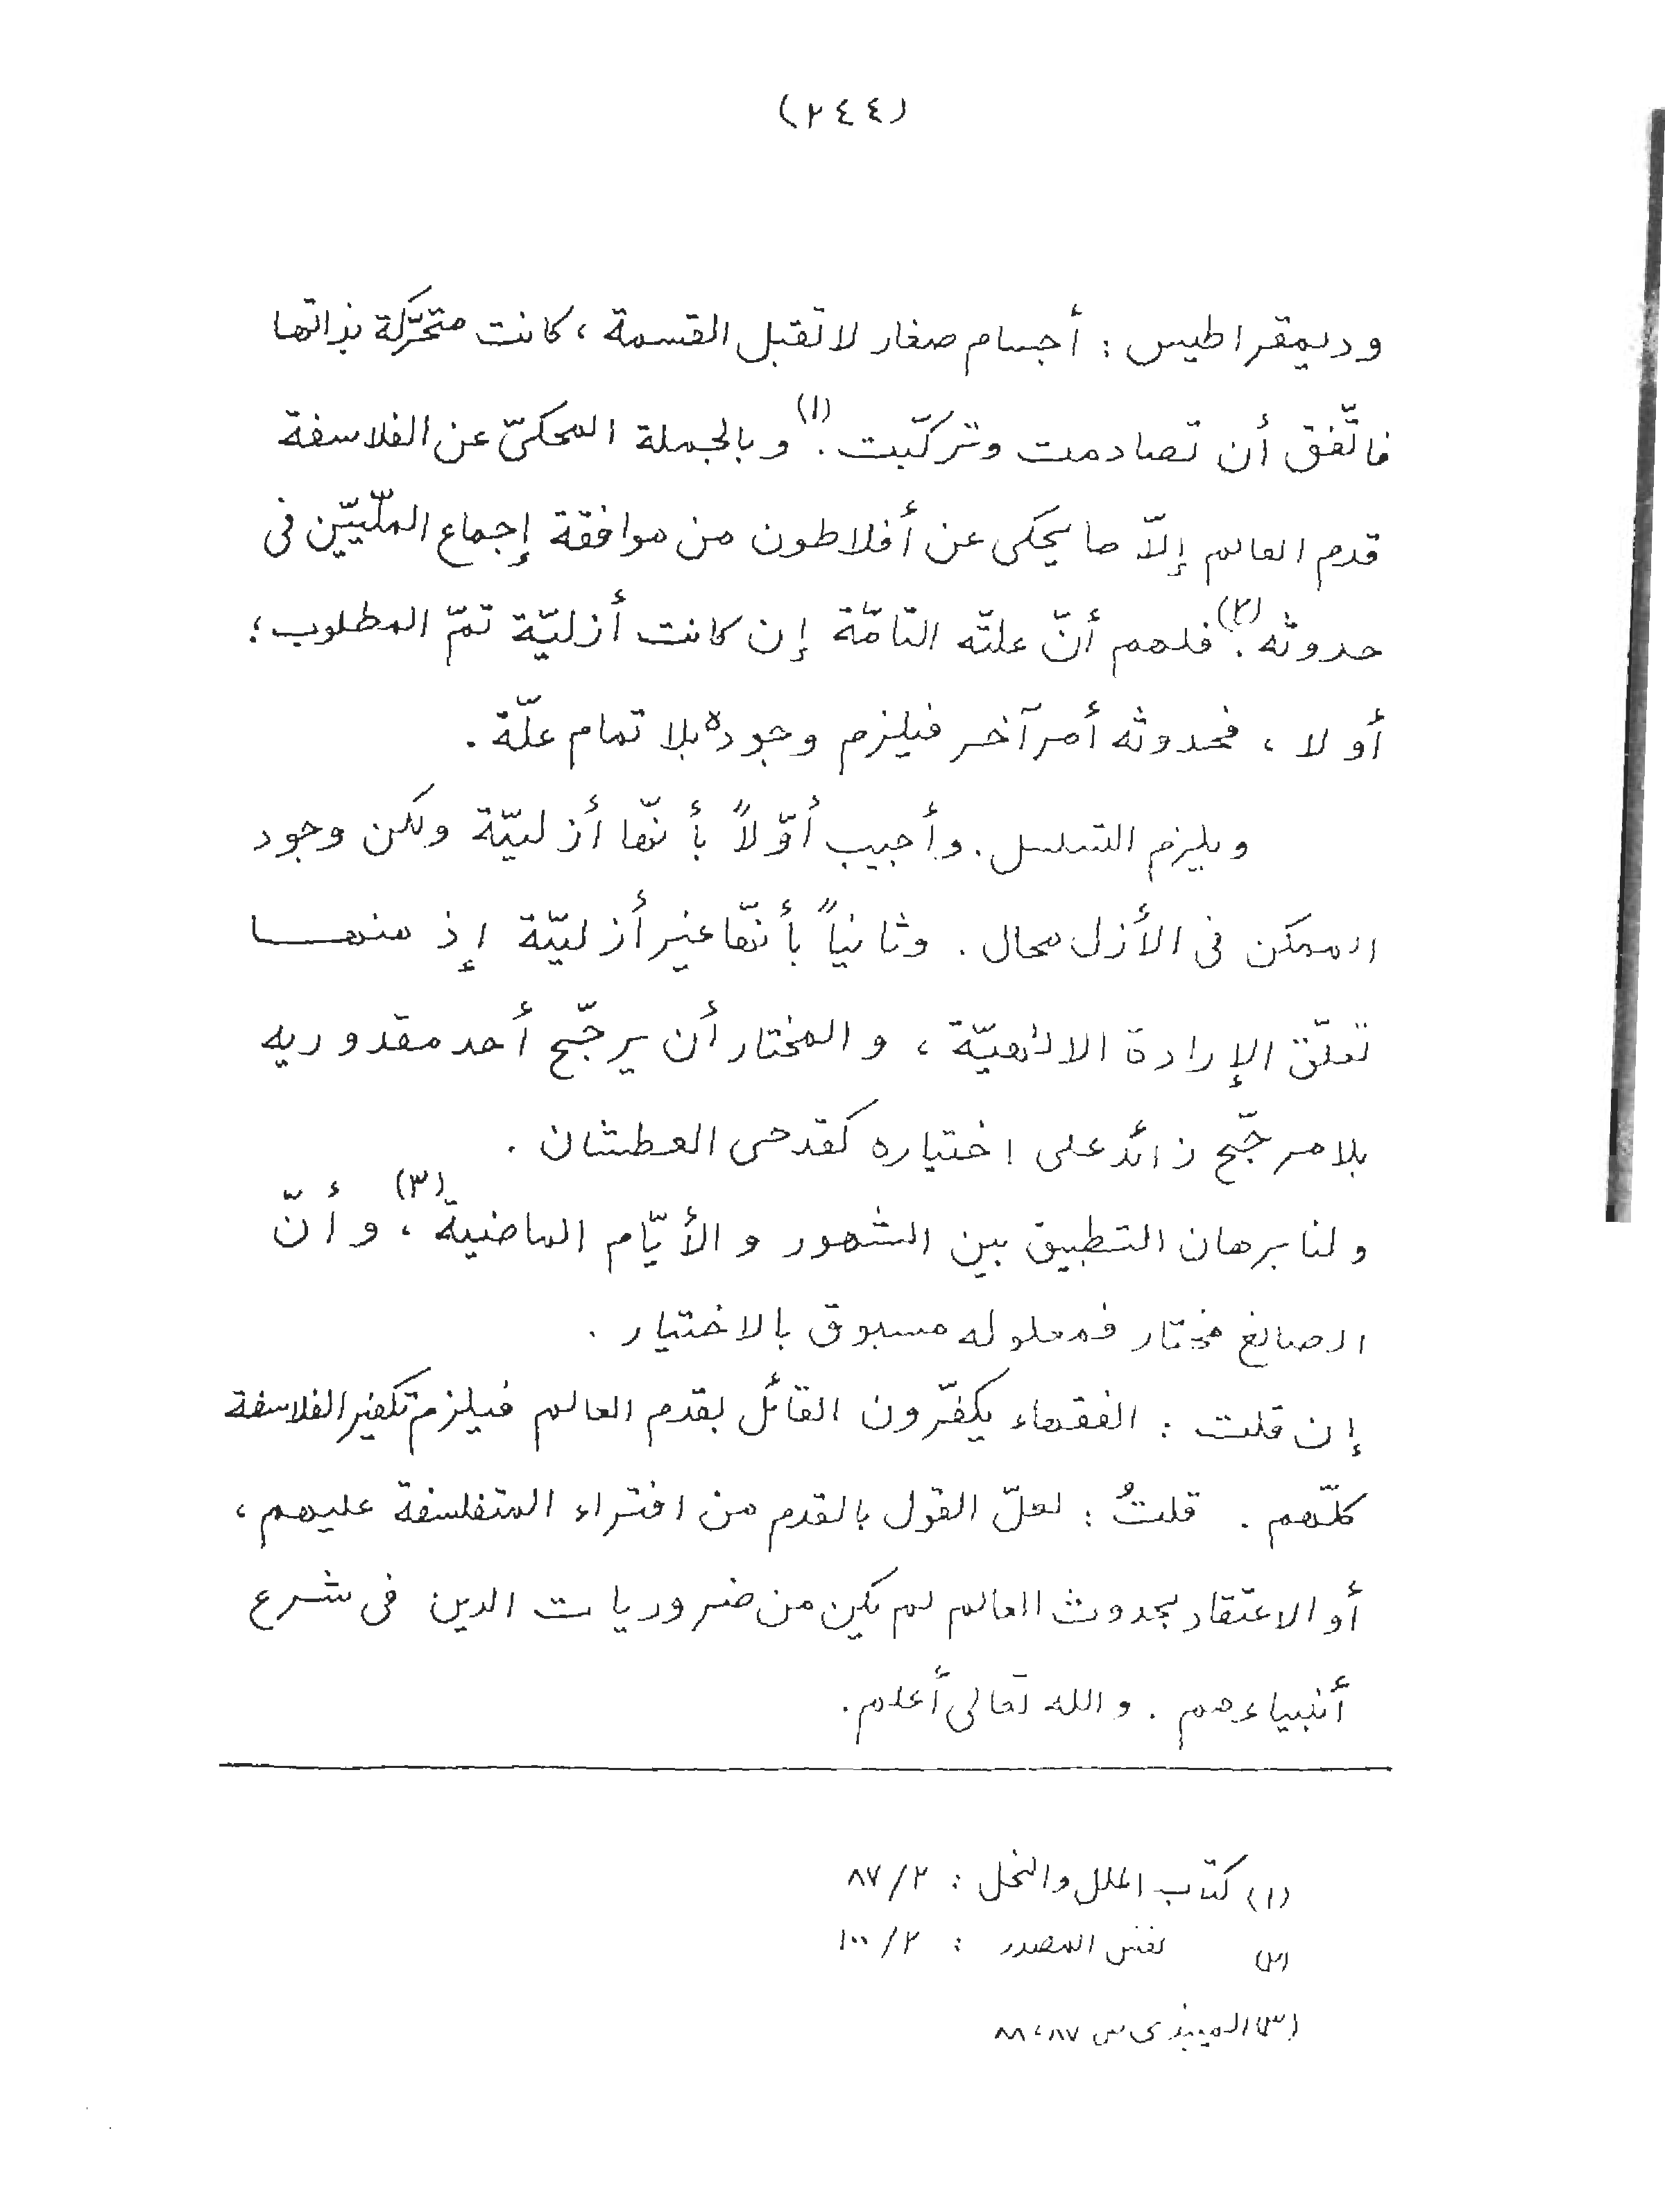 (٢٤٤)
وديمقراطيس : أجسام صغار لا تقبل القسمة ، كانت متحرّكة بذاتها
فاتّفق أن تصادمت وتركّبت .(١) وبالجملة المحكيّ عن الفلاسفة
قدم العالم إلاّ ما يحكى عن أفلاطون من موافقة إجماع الملّييّن فى
حدوثه .(٢) فلهم أنّ علتّه التامّة إن كانت أزليّة تمّ المطلوب ؛
أو لا ، فحدوثه أمر آخر فيلزم وجوده بلا تمام علّة .
ويلزم التسلسل . وأجيب أوّلاً بأنّها أزليّة ولكن وجود
الممكن فى الأزل محال . وثانياً بأنّها غير أزليّة إذ منها
تعلّق الإرادة الالٰهيّة ، والمختار أن يرجّح أحد مقدوريه
بلا مرجّح زائد على اختياره كقدحى العطشان .
ولنا برهان التطبيق بين الشهور والأيّام الماضية (٣) ، وأنّ
الصانع مختار فمعلوله مسبوق بالاختيار .
إن قلت : الفقهاء يكفّرون القائل بقدم العالم فيلزم تكفير الفلاسفة
كلّهم . قلتُ : لعلّ القول بالقدم من افتراء المتفلسفة عليهم ،
أو الاعتقاد بحدوث العالم لم يكن من ضروريات الدين فى شرع
أنبياءهم . والله تعالى أعلم .
(١) كتاب الملل والنحل : ٢/٨٧
(٢) نفس المصدر : ٢/١٠٠
(٣) الميبذى ص ٨٧ ، ٨٨